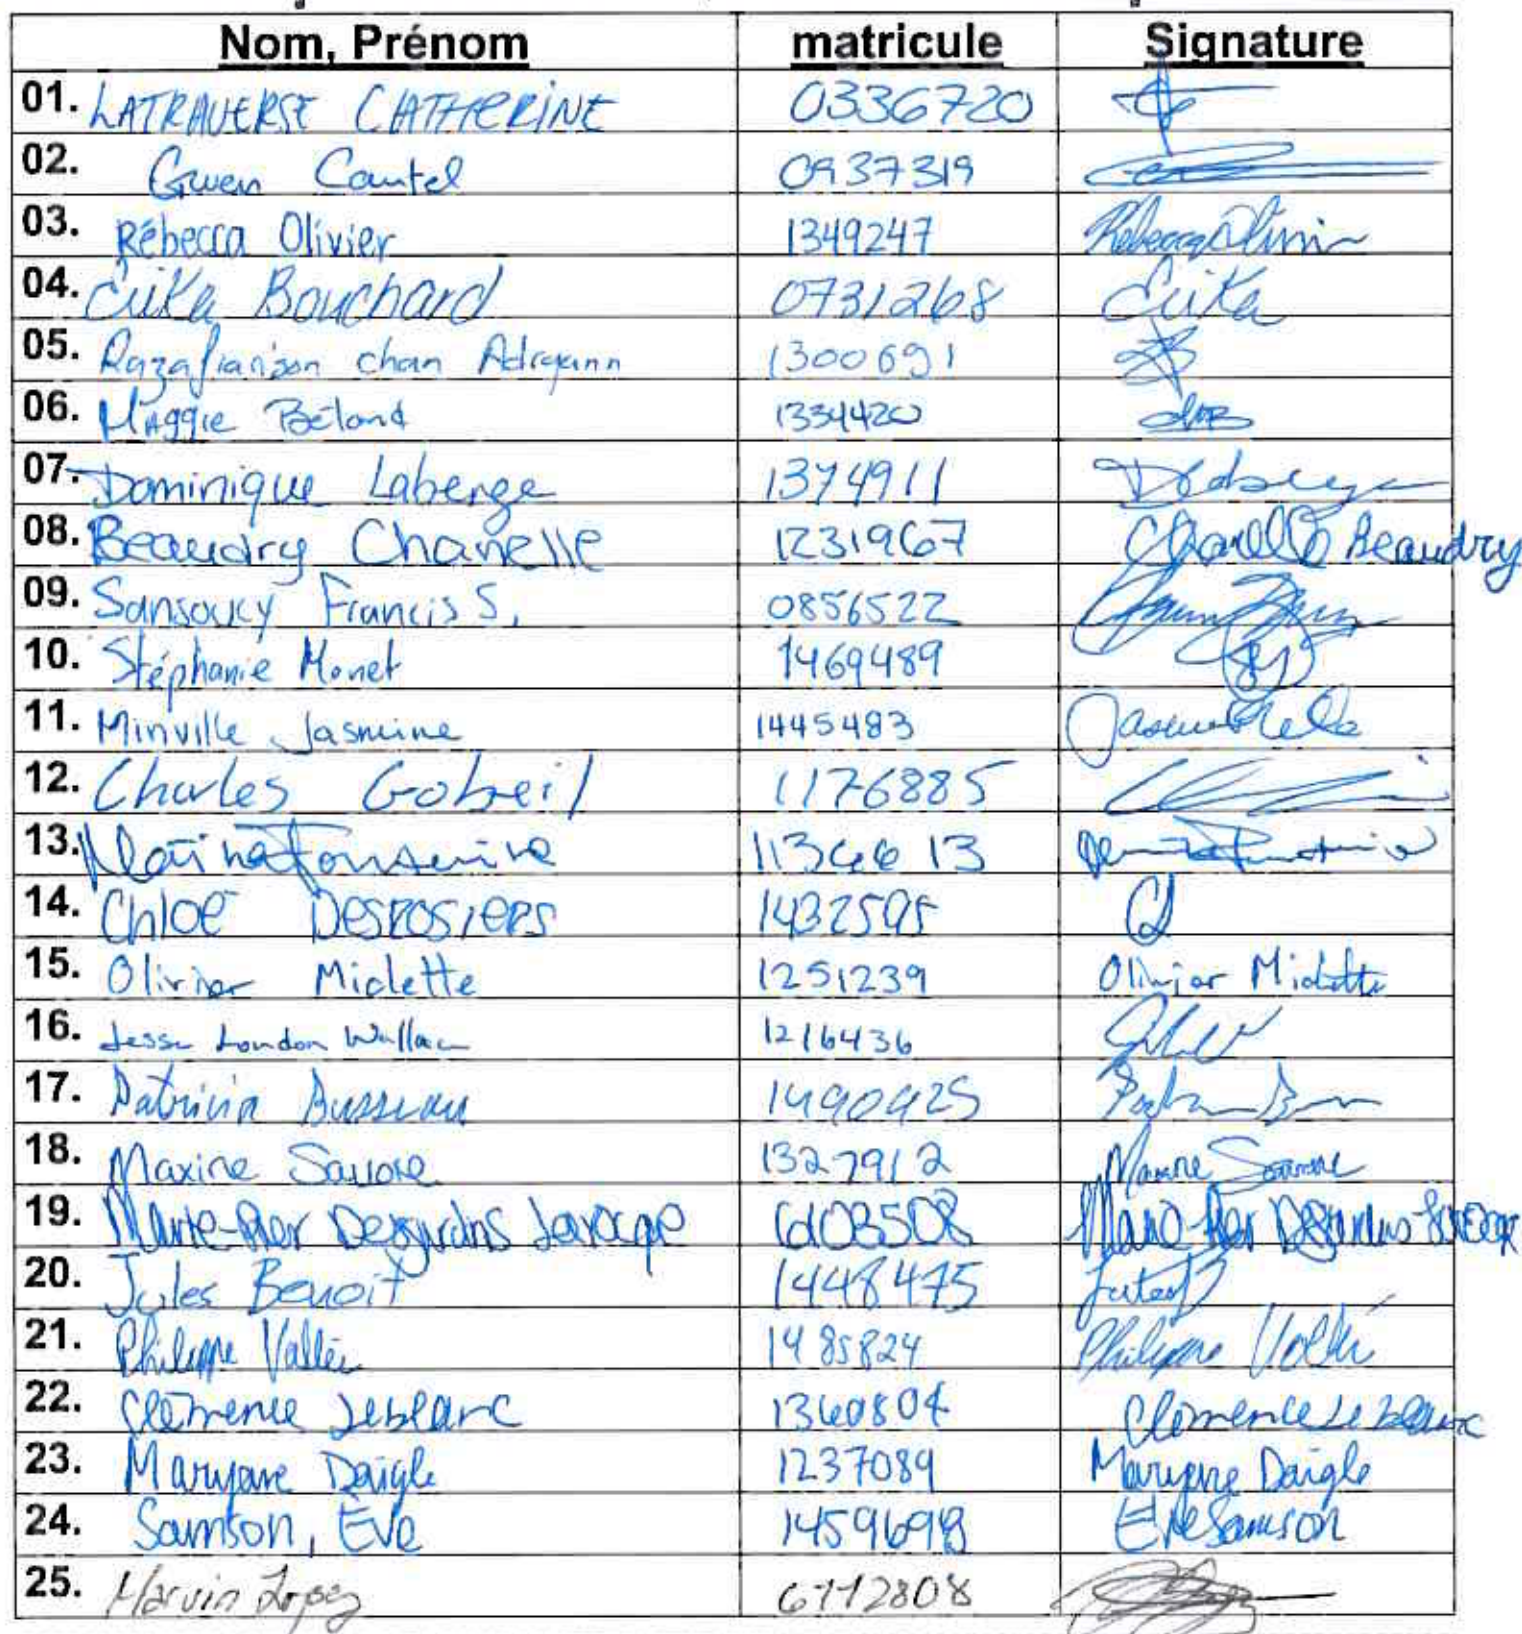 Nom, Prénom matricule Signature
01. LATRAVERSE CATHERINE 0336720
02. Gwen Cantel 0937319
03. Rébecca Olivier 1349247 Rébecca Olivier
04. Erika Bouchard 0731268 Erika
05. chan 1300691
06. Maggie Béland 1334420
07. Dominique Laberge 1374911
08. Beaudry Chanelle 1231967 Chanelle Beaudry
09. Sansoucy Francis S. 0856522
10. Stéphanie Monet 1469489
11. Minville Jasmine 1445483
12. Charles Gobeil 1176885
13. Fontaine
14. Chloé DESROSIERS 1432595 CD
15. Olivier Miclette 1251239 Olivier Miclette
16. Jesse London Wallace 1216436
17. Patricia
18. Maxine Savoie 1327912 Maxine Savoie
19. Marie-Pier Desjardins Levacque Marie-Pier Desjardins
20. Jules Benoit 1448475
21. Philippe Vallée 1485824 Philippe Vallée
22. Clémence Leblanc 1360804 Clémence Leblanc
23. Maryane Daigle 1237089 Maryane Daigle
24. Samson, Eve Eve Samson
25. Marvin Lopez